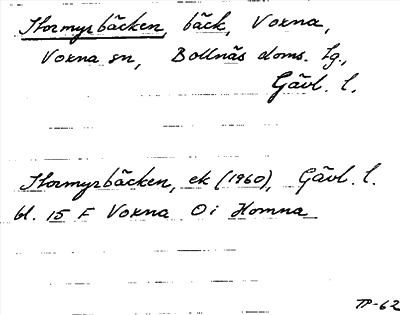 Stormyrbäcken, bäck, Voxna,
Voxna sn, Bollnäs doms. tg.,
Gävl. l.
Stormyrbäcken, ek (1960), Gävl. l.
bl. 15 F Voxna O i Homna
TP-62